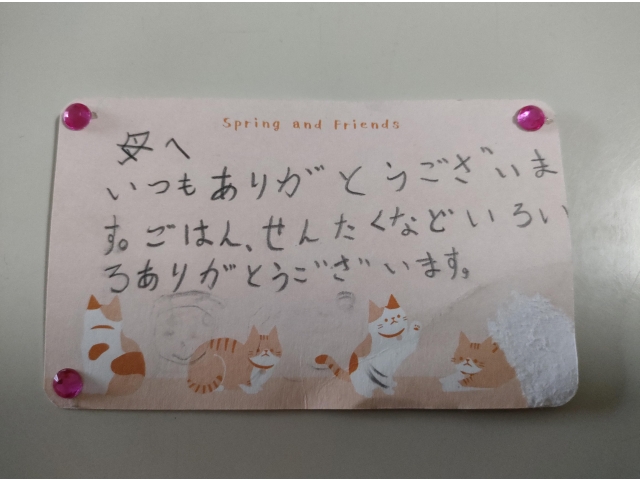 Spring and Friends
母へ
いつもありがとうございま
す。ごはん、せんたくなどいろい
ろありがとうございます。